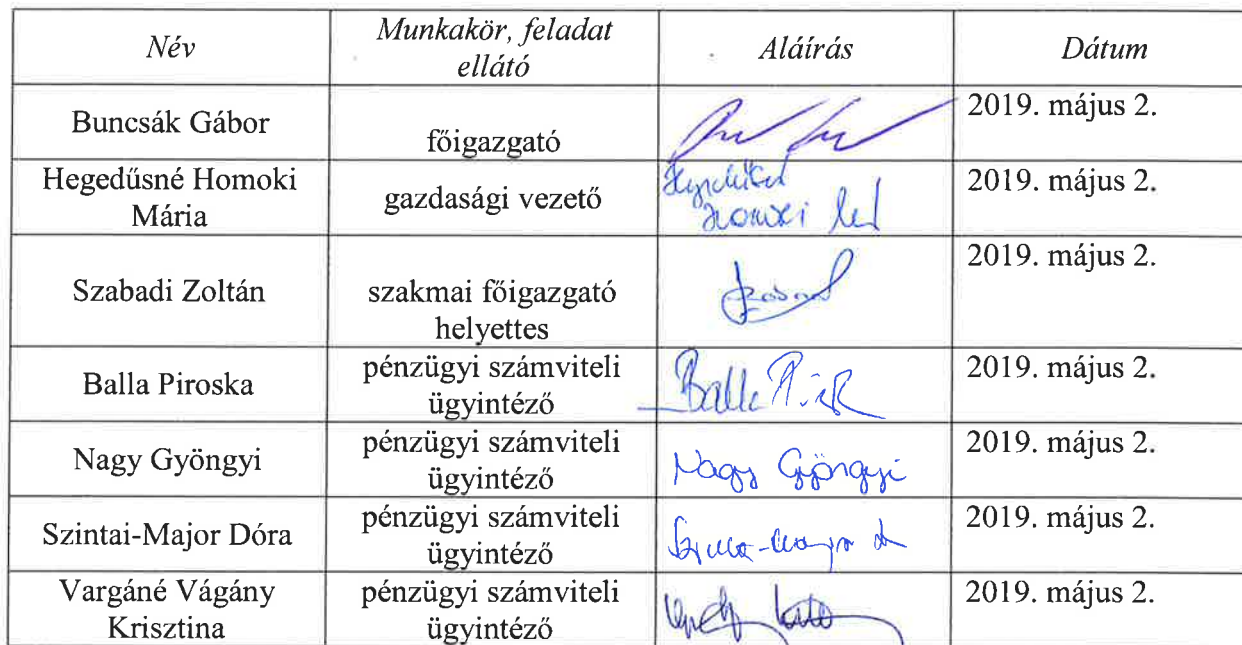 Név
Munkakör, feladat
ellátó
Aláírás
Dátum
Buncsák Gábor
főigazgató
2019. május 2.
Hegedűsné Homoki
Mária
gazdasági vezető
Homoki
2019. május 2.
Szabadi Zoltán
szakmai főigazgató
helyettes
2019. május 2.
Balla Piroska
pénzügyi számviteli
ügyintéző
Balla
2019. május 2.
Nagy Gyöngyi
pénzügyi számviteli
ügyintéző
Nagy Gyöngyi
2019. május 2.
Szintai-Major Dóra
pénzügyi számviteli
ügyintéző
2019. május 2.
Vargáné Vágány
Krisztina
pénzügyi számviteli
ügyintéző
2019. május 2.